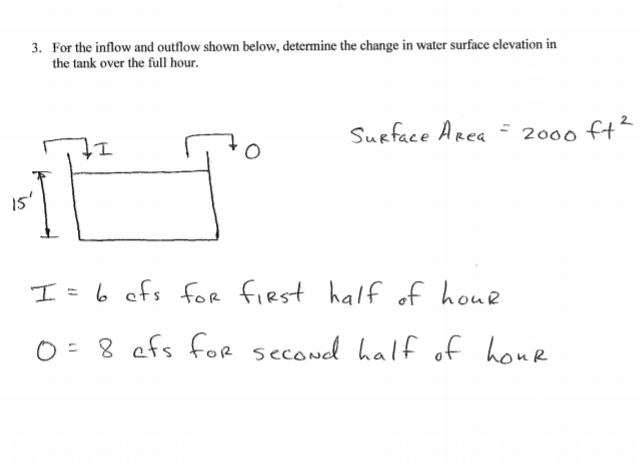 3. For the inflow and outflow shown below, determine the change in water surface elevation in
the tank over the full hour.
Surface Area = 2000 ft²
I
O
15'
I = 6 cfs for first half of hour
O = 8 cfs for second half of hour